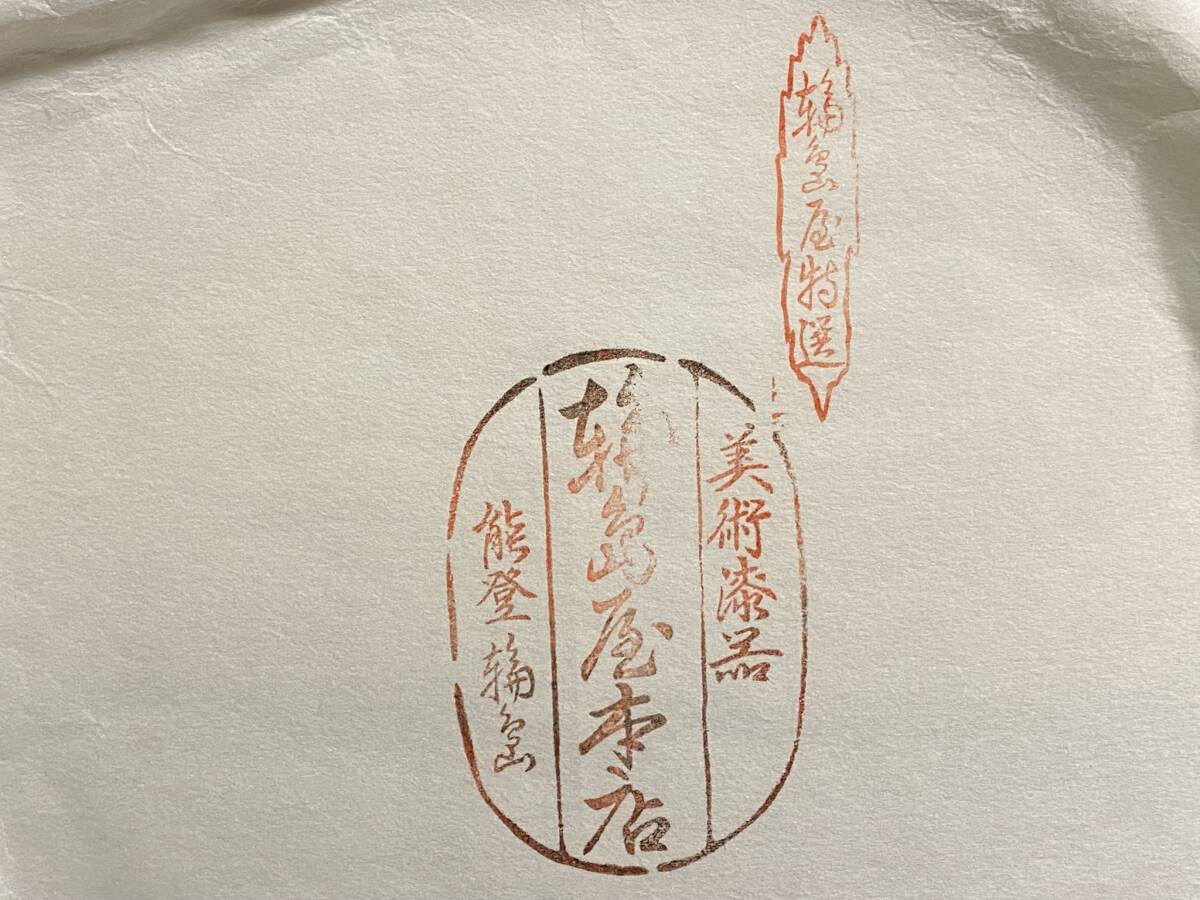 輪島屋特選
美術漆器
輪島屋本店
能登輪島